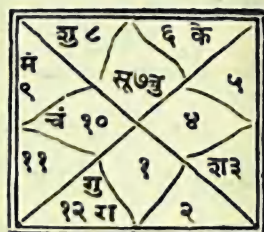 शु ८ ६ के
मं सू ७ बु
९ ५
चं १० ४
११ १ श ३
गु
१२ रा २